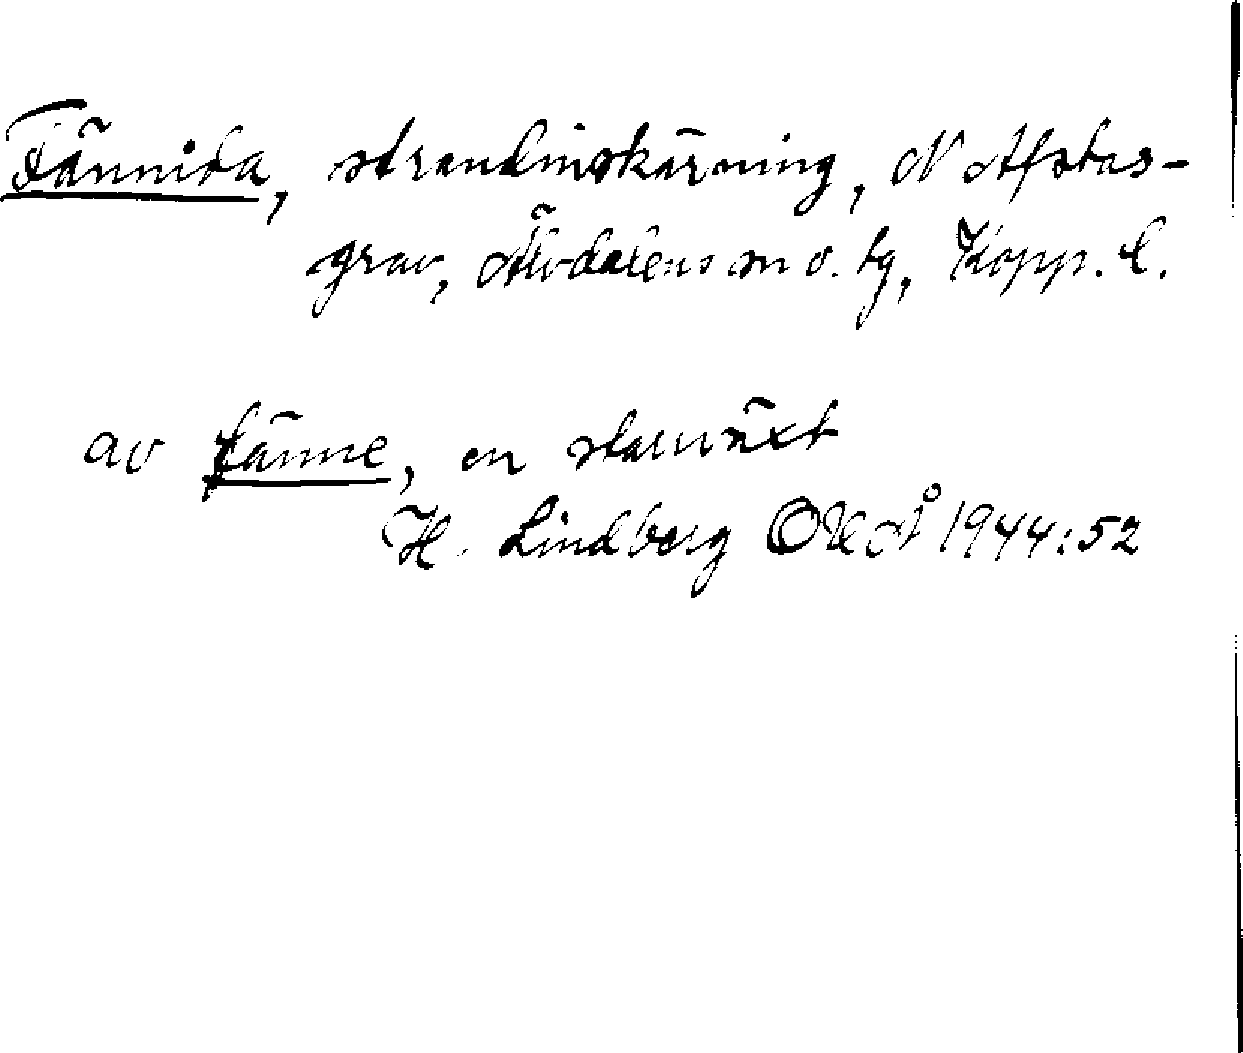 Fännika, strandinskärning, N Afstas-
grav, Älvdalens sn o. tg, Kopp. l.
av fänne, en starrväxt
H. Lindberg OUÅ 1944:52